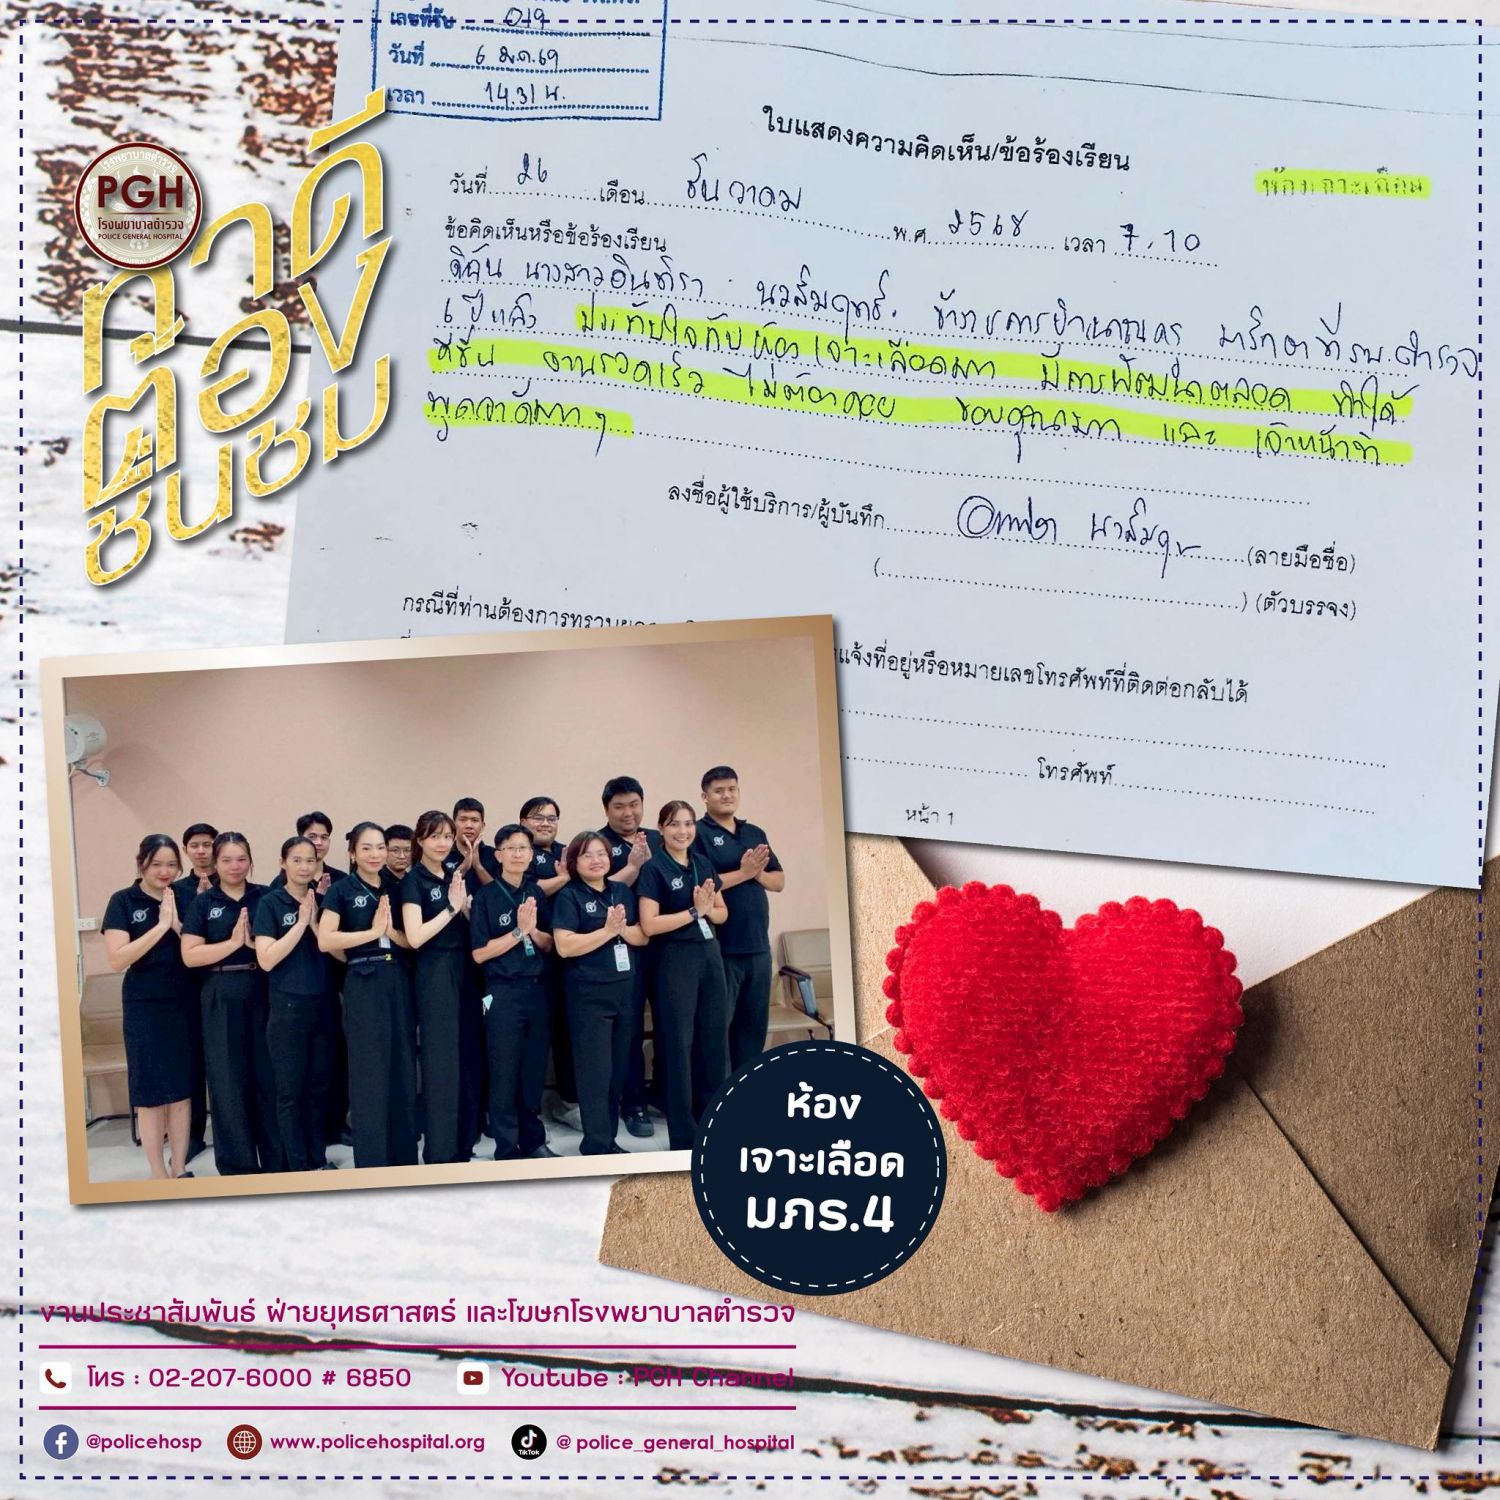 เลขที่รับ 019
วันที่ 6 ม.ค. 69
เวลา 14.31 น.
ใบแสดงความคิดเห็น/ข้อร้องเรียน
ห้องเจาะเลือด
วันที่ 26 เดือน ธันวาคม พ.ศ. 2568 เวลา 7.10
ข้อคิดเห็นหรือข้อร้องเรียน
ดิฉัน นางสาวอินทิรา นวสัมฤทธิ์ ข้าราชการบำนาญ มารักษาที่ รพ.ตำรวจ
6 ปีแล้ว ประทับใจกับห้องเจาะเลือดมาก มีการพัฒนาตลอด ทำได้
ดีขึ้น งานรวดเร็ว ไม่ต้องคอย ขอบคุณมาก และ เจ้าหน้าที่
พูดจาดีมากๆ
ลงชื่อผู้ใช้บริการ/ผู้บันทึก (ลายมือชื่อ)
( ) (ตัวบรรจง)
กรณีที่ท่านต้องการทราบ
แจ้งที่อยู่หรือหมายเลขโทรศัพท์ที่ติดต่อกลับได้
โทรศัพท์
หน้า 1
PGH
โรงพยาบาลตำรวจ
POLICE GENERAL HOSPITAL
ทำดี
ต้อง
ชื่นชม
ห้อง
เจาะเลือด
มภร.4
งานประชาสัมพันธ์ ฝ่ายยุทธศาสตร์ และโฆษกโรงพยาบาลตำรวจ
โทร : 02-207-6000 # 6850 Youtube : PGH Channel
@policehosp www.policehospital.org TikTok @ police_general_hospital